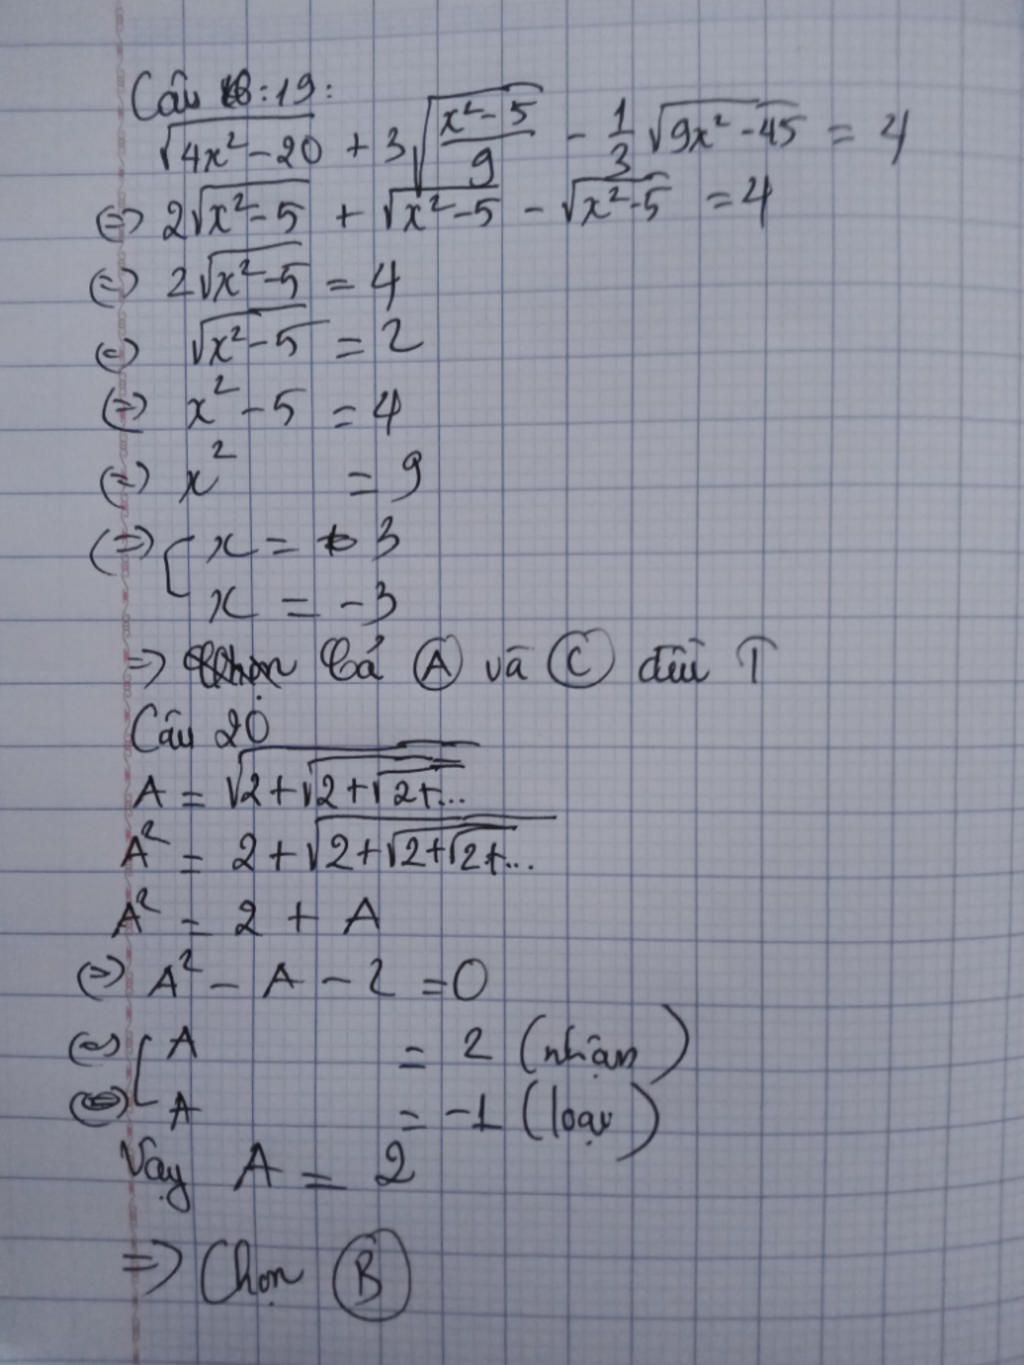 Câu 19:
√(4x² - 20) + 3√((x² - 5)/9) - 1/3 √(9x² - 45) = 4
⇔ 2√(x² - 5) + √(x² - 5) - √(x² - 5) = 4
⇔ 2√(x² - 5) = 4
⇔ √(x² - 5) = 2
⇔ x² - 5 = 4
⇔ x² = 9
⇔ [ x = 3
x = -3
=> Cả A và C đều T
Câu 20
A = √(2 + √(2 + √(2 + ...
A² = 2 + √(2 + √(2 + √(2 + ...
A² = 2 + A
⇔ A² - A - 2 = 0
⇔ [ A = 2 (nhận)
A = -1 (loại)
Vậy A = 2
=> Chọn B